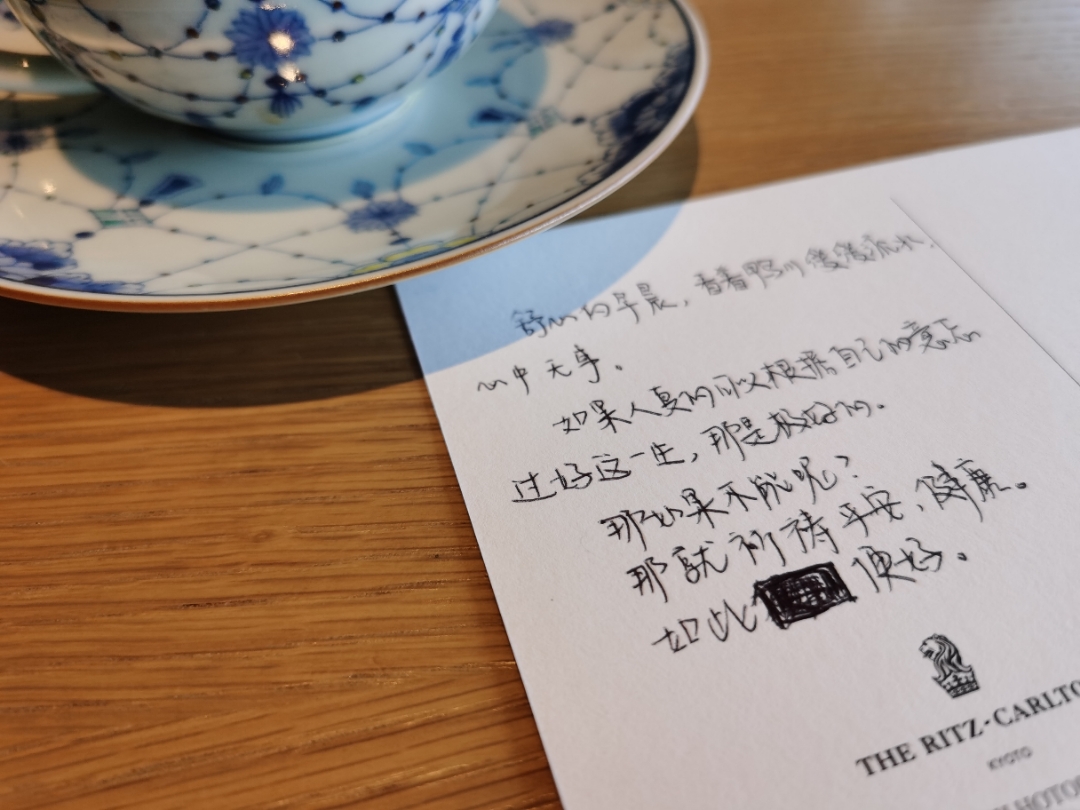 舒心的早晨，看着鸭川缓缓流水，
心中无事。
如果人真的可以根据自己的意志
过好这一生，那是极好的。
那如果不能呢？
那就祈祷平安、健康。
如此 便好。
THE RITZ-CARLTO
KYOTO